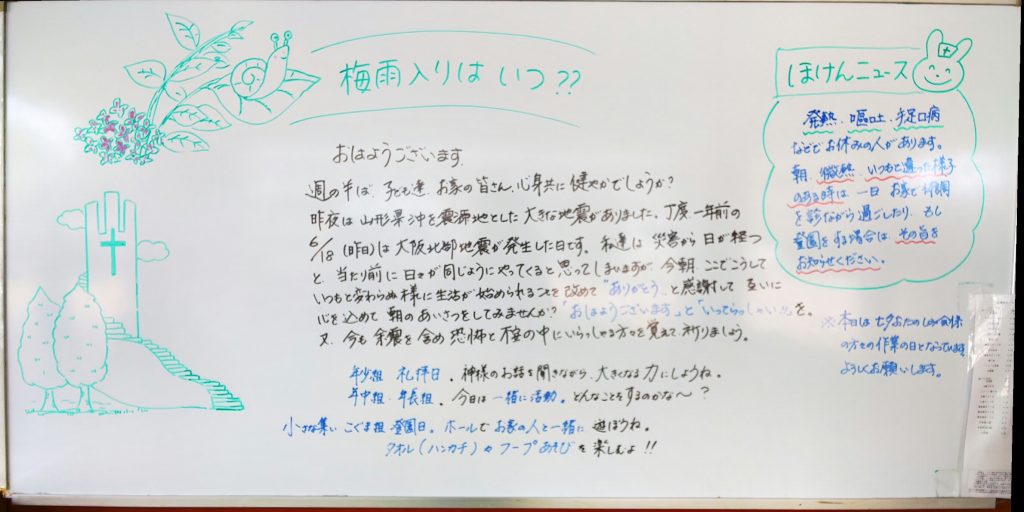 梅雨入りは いつ??
おはようございます。
週の半ば、子ども達、お家の皆さん、心身共に健やかでしょうか?
昨夜は山形県沖を震源地とした大きな地震がありました。丁度一年前の
6/18(昨日)は大阪北部地震が発生した日です。私達は災害から日が経つ
と、当たり前に日々が同じようにやってくると思ってしまいますが、今朝ここでこうして
いつもと変わらぬ様に生活が始められることを改めて"ありがとう"と感謝して互いに
心を込めて朝のあいさつをしてみませんか?"おはようございます"と"いってらっしゃい"を。
又、今も余震を含め恐怖と不安の中にいらっしゃる方々を覚えて祈りましょう。
年少組 礼拝日。神様のお話を聞きながら、大きくなる力にしようね。
年中組・年長組。今日は一緒に活動。どんなことをするのかな〜?
小さな集い こぐま組 登園日。ホールでお家の人と一緒に遊ぼうね。
タオル(ハンカチ)やフープあそびを楽しむよ!!
ほけんニュース
発熱、嘔吐、手足口病
などでお休みの人があります。
朝、微熱、いつもと違った様子
のある時は一日お家で体調
を診ながら過ごしたり、もし
登園をする場合は、その旨を
お知らせください。
※本日は七夕おたのしみ会係
の方々の作業の日となっています。
よろしくお願いします。